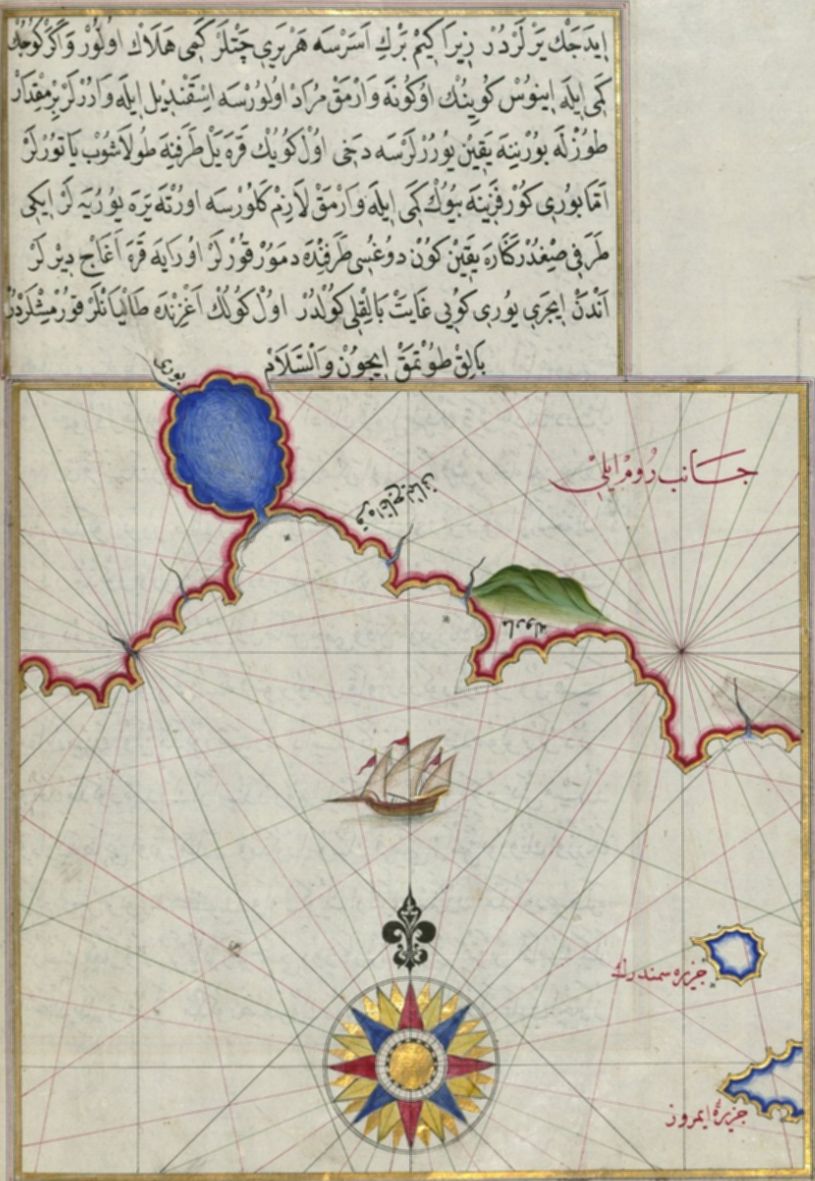 ایدجك یرلردر زیرا كیم برك اسرسه هربری چتلر كمی هلاك اولور واكر كوجك
كمی ایله اینوس كوینك اوكونه وارمق مراد اولورسه اسقندیل ایله واررلر بر مقدار
طوزله بورنینه یقین یوررلرسه دخی اول كویك قره یل طرفینه طولاشوب یاتورلر
اما بوری كورفزینه بیوك كمی ایله وارمق لازم كلورسه اورته یره یوریه لر ایكی
طرفی صیغدر كناره یقین كون دوغسی طرفنده دمور قورلر اورایه قره اغاج دیرلر
اندن ایچری یوری كویی غایت بالقلی كولدر اول كولك اغزنده طالیانلر قورمشلردر
بالق طوتمق ایچون والسلام
بوری
جانب روم ایلی
قره اغاج لیمانی
ماروله
جزیره سمندرك
جزیرۀ ایمروز